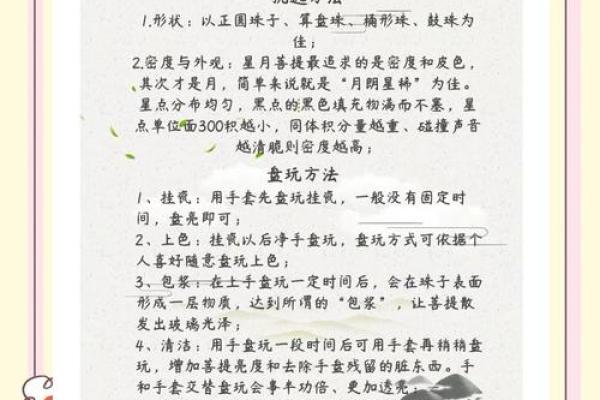 挑选方法
1.形状：以正圆珠子、算盘珠、桶形珠、鼓珠为
佳；
2.密度与外观：星月菩提最追求的是密度和皮色，
其次才是月，简单来说就是“月明星稀”为佳。
星点分布均匀，黑点的黑色填充物满而不塞，星
点单位面300积越小，同体积分量越重、碰撞声音
越清脆则密度越高；
盘玩方法
1、挂瓷：用手套先盘玩挂瓷，一般没有固定时
间，盘亮即可；
2、上色：挂瓷以后净手盘玩，盘玩方式可依据个
人喜好随意盘玩上色；
3、包浆：在上手盘玩一定时间后，会在珠子表面
形成一层物质，达到所谓的“包浆”，让菩提散
发出玻璃光泽；
4、清洁：用手盘玩一段时间后可用手套再稍稍盘
玩，增加菩提亮度和去除手盘残留的脏东西。手
和手套交替盘玩会事半功倍、更加透亮；